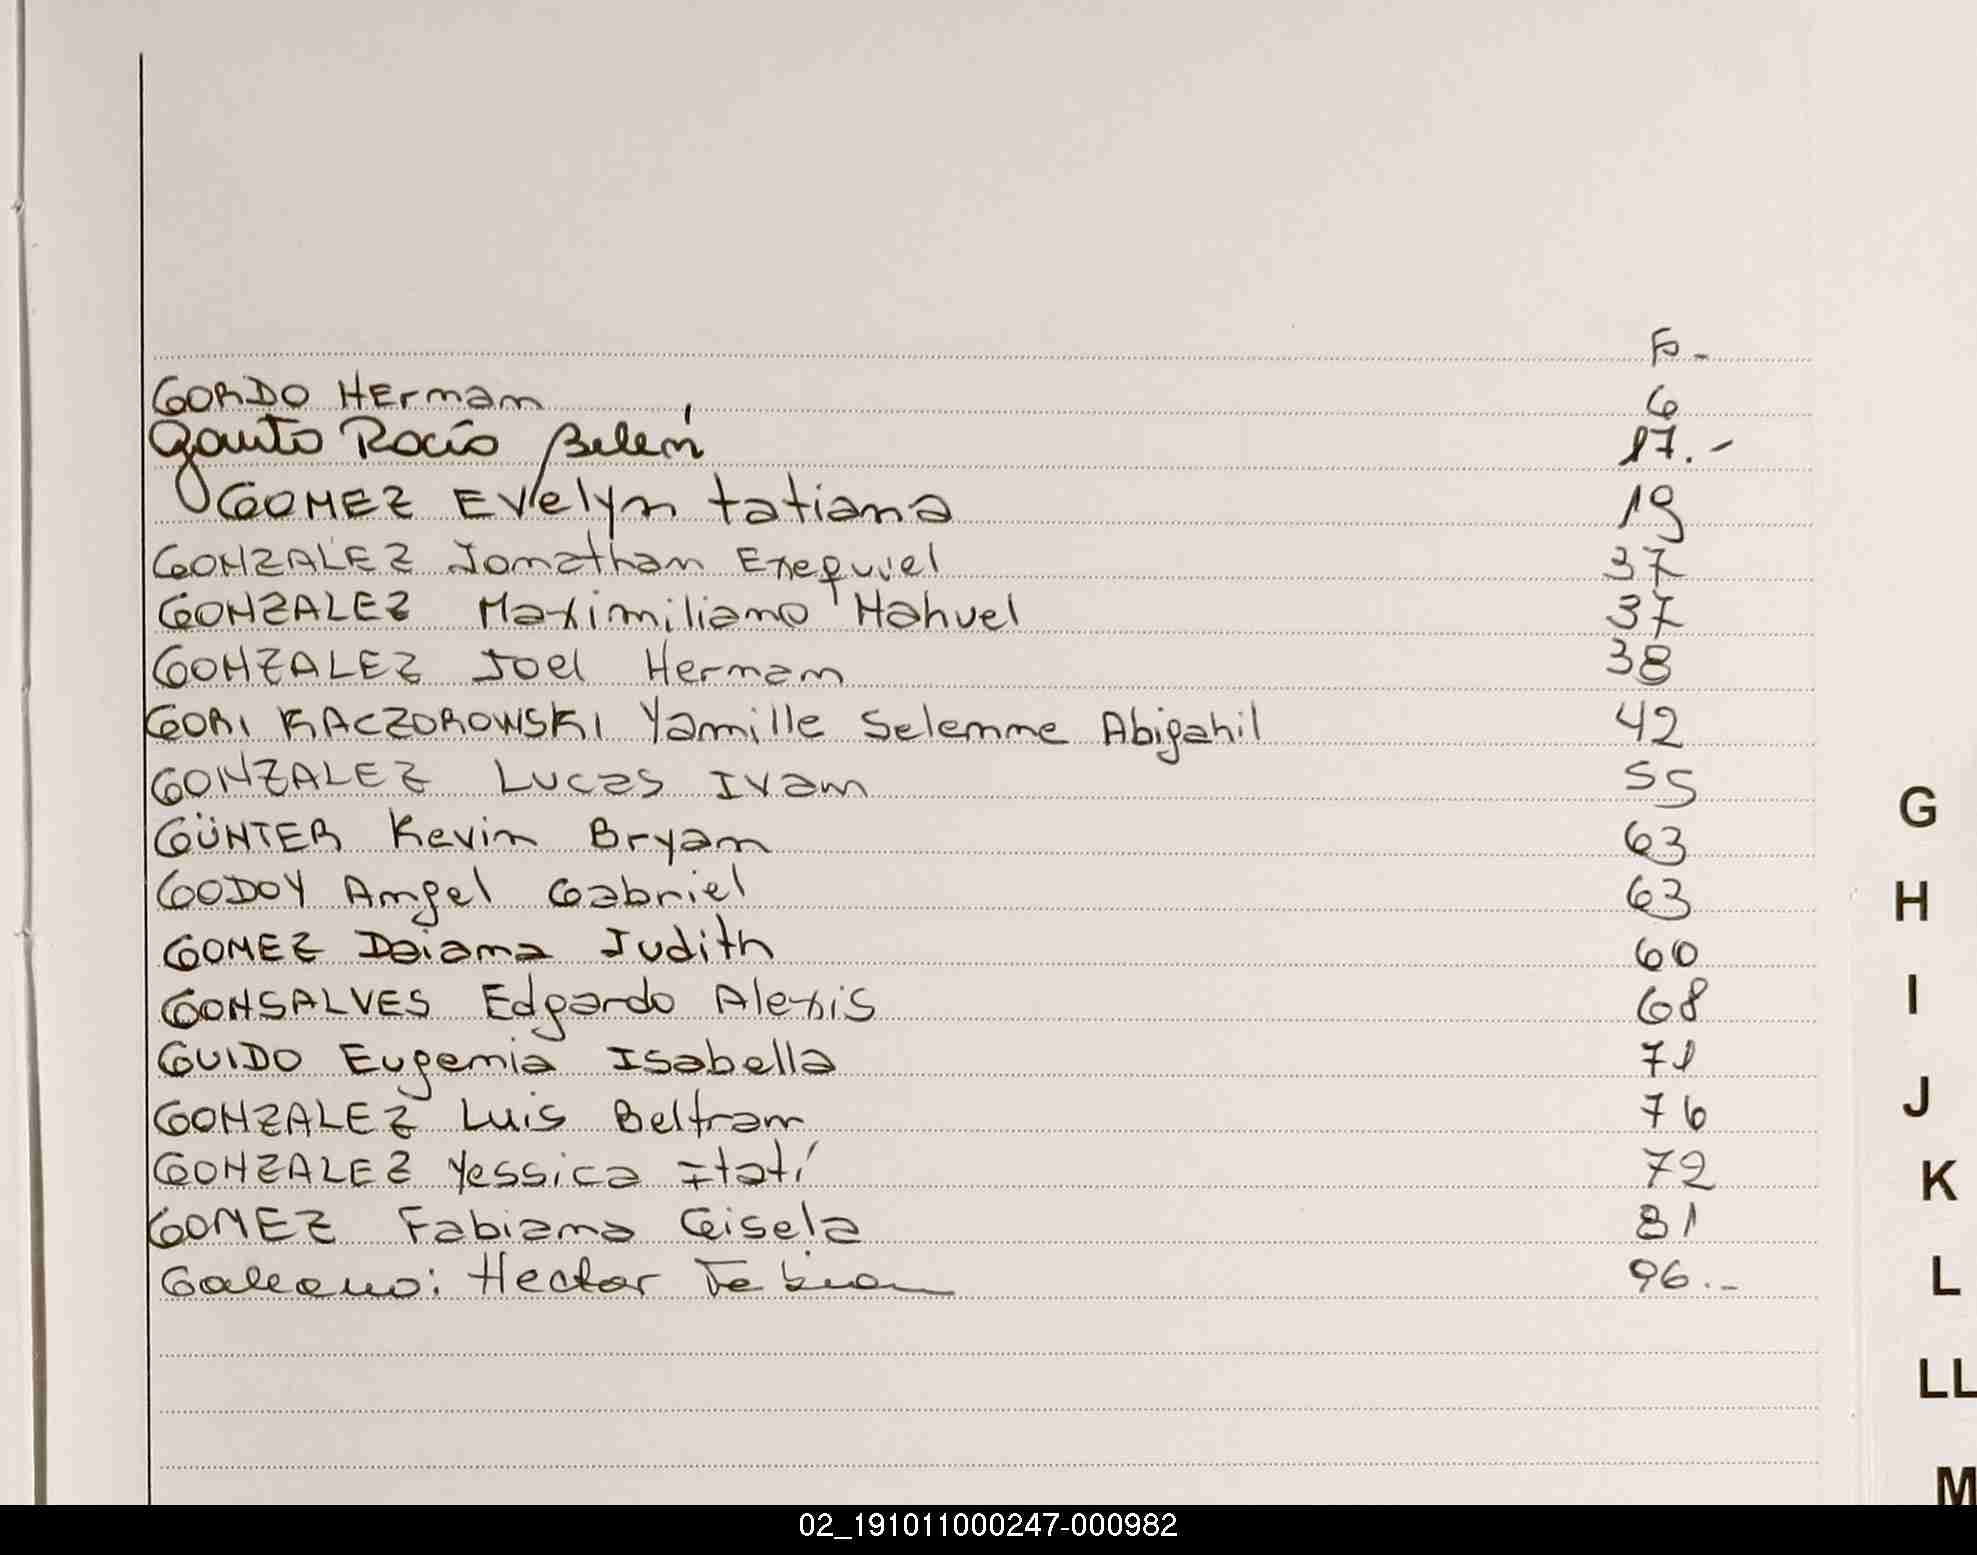 Fo-
GORDO Hernan 6
Gauto Rocío Belén 17.-
GOMEZ Evelyn tatiana 19
GONZALEZ Jonathan Exequiel 37
GONZALEZ Maximiliano Nahuel 37
GONZALEZ Joel Hernan 38
GORI KACZOROWSKI Yamille Selenne Abigahil 42
GONZALEZ Lucas Ivan 55
GÜNTER Kevin Bryan 63
GODOY Angel Gabriel 63
GOMEZ Daiana Judith 60
GONSALVES Edgardo Alexis 68
GUIDO Eugenia Isabella 71
GONZALEZ Luis Beltran 76
GONZALEZ Yessica Itatí 72
GOMEZ Fabiana Gisela 81
Galeano: Hector Fabian 96.-
G
H
I
J
K
L
LL
M
02_191011000247-000982